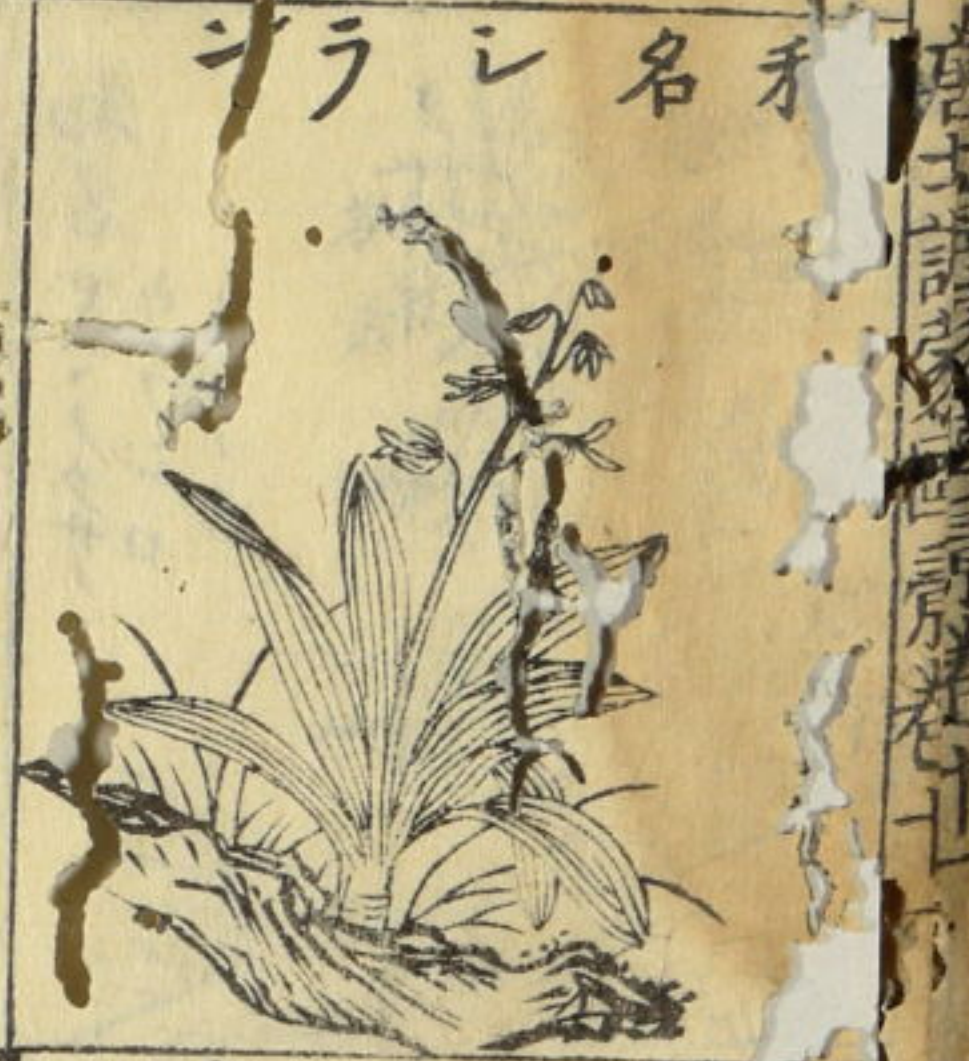 和名シラン
唐土訓蒙圖彙卷十